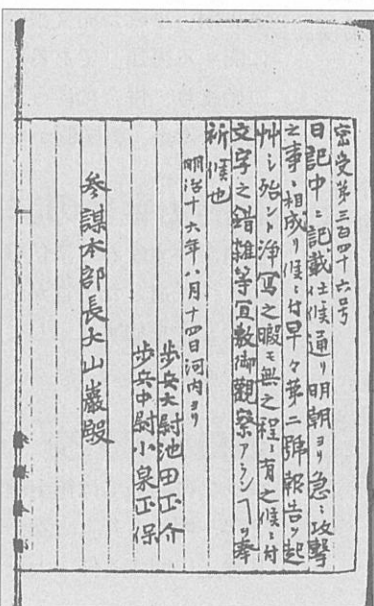 密受第三百四十六号
日記中ニ記載仕候通リ明朝ヨリ急ニ攻撃
之事ニ相成リ候ニ付早々第二號報告ヲ起
艸シ殆ント浄寫之暇モ無之程ニ有之候ニ付
文字之錯雑等宜敷御觀察アランヿヲ奉
祈候也
明治十六年八月十四日河内ヨリ
歩兵大尉池田正介
歩兵中尉小泉正保
参謀本部長大山巖殿